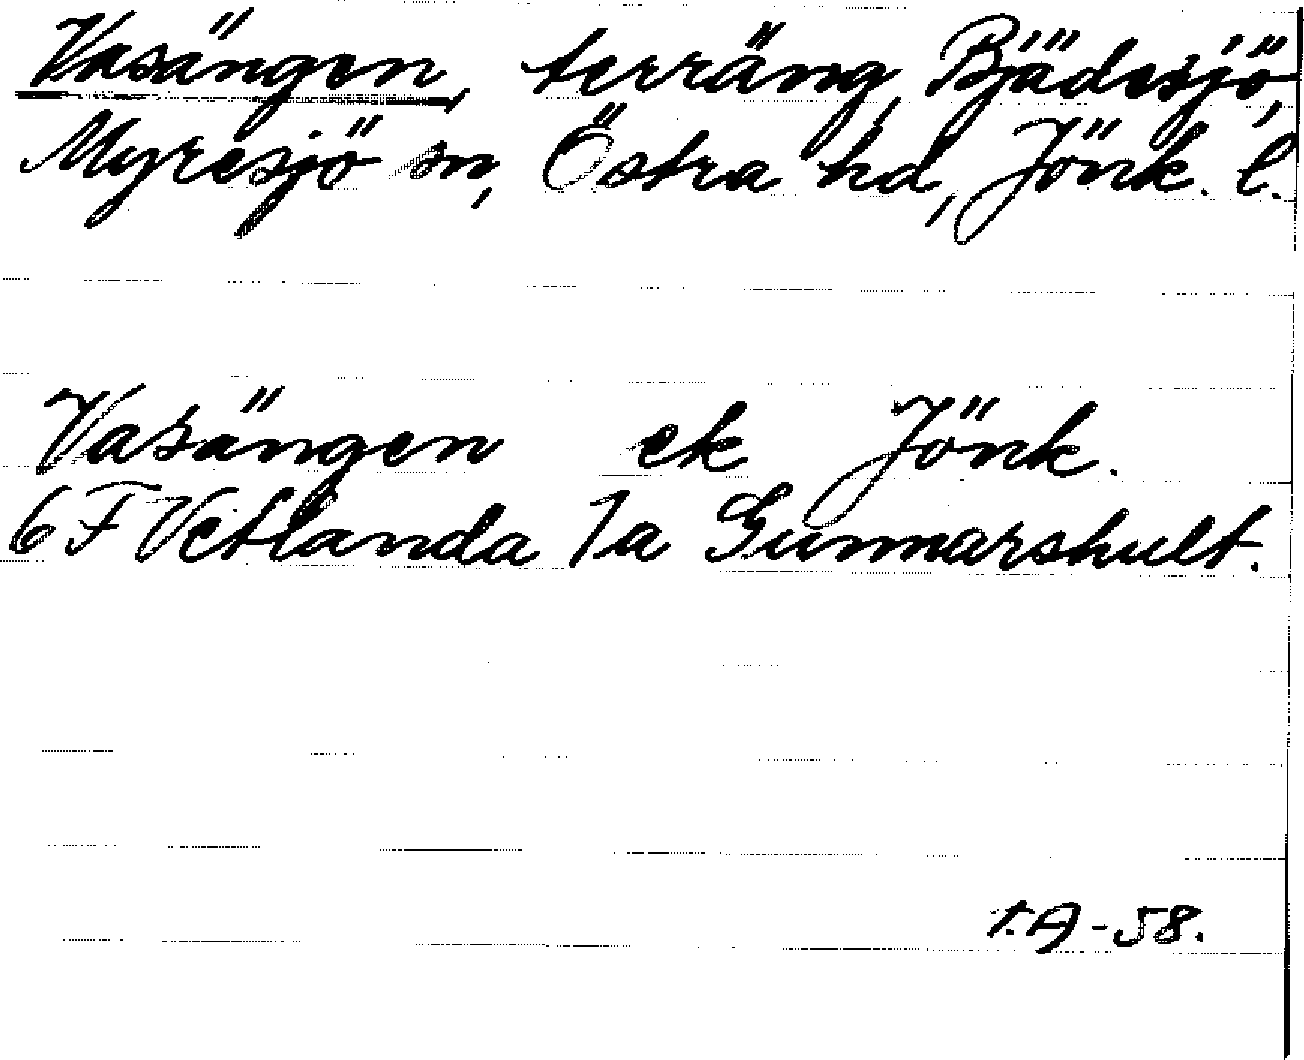 Vasängen, terräng, Bjädesjö,
Myresjö sn, Östra hd, Jönk. l.
Vasängen ek Jönk.
6 F Vetlanda 7a Gunnarshult.
T.A -58.